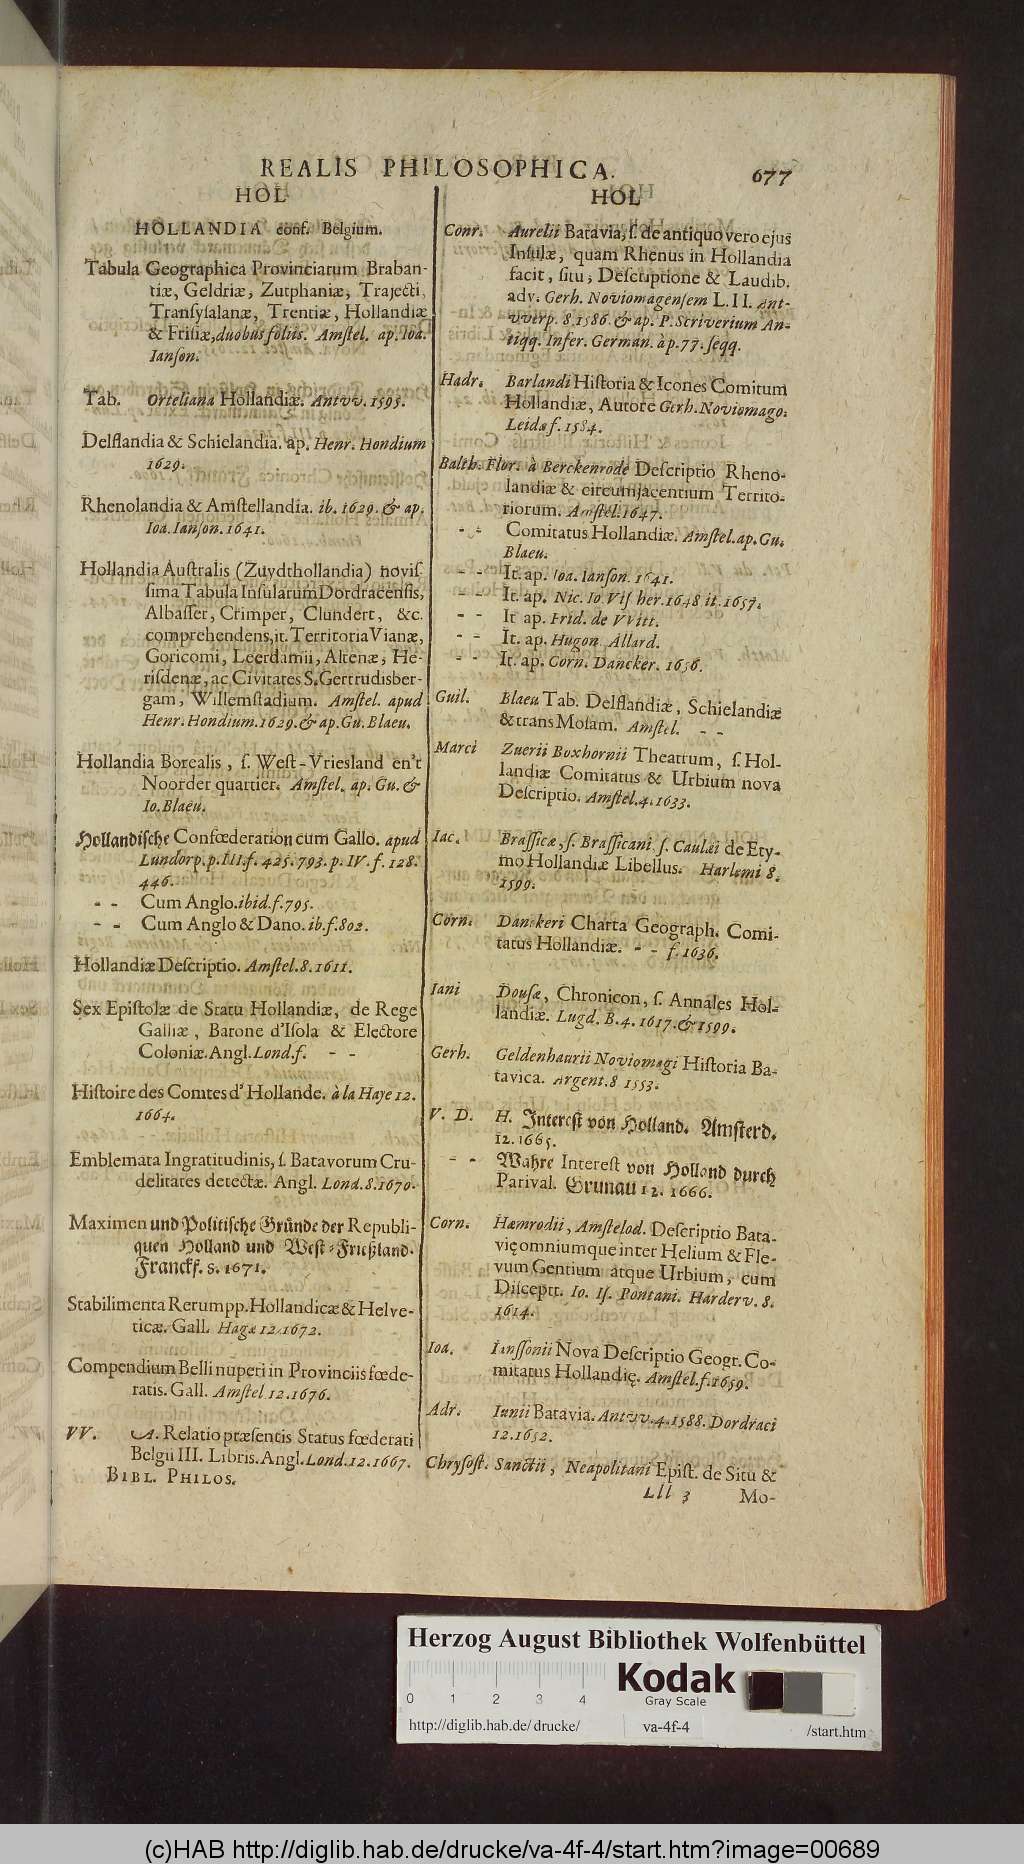 REALIS PHILOSOPHICA. 677
HOL
HOLLANDIA conf. Belgium.
Tabula Geographica Provinciarum Braban-
tiæ, Geldriæ, Zutphaniæ, Trajecti,
Tranſyſalanæ, Trentiæ, Hollandiæ
& Friſiæ, duobus foliis. Amſtel. ap. Ioa.
Ianſon.
Tab. Orteliana Hollandiæ. Antvv. 1595.
Delflandia & Schielandia. ap. Henr. Hondium
1629.
Rhenolandia & Amſtellandia. ib. 1629. & ap.
Ioa. Ianſon. 1641.
Hollandia Auſtralis (Zuydthollandia) noviſ
ſima Tabula Inſularum Dordracenſis,
Albaſſer, Crimper, Clundert, &c.
comprehendens, it. Territoria Vianæ,
Goricomi, Leerdamii, Altenæ, He-
riſdenæ, ac Civitates S. Gertrudisber-
gam, Willemſtadium. Amſtel. apud
Henr. Hondium. 1629. & ap. Gu. Blaeu.
Hollandia Borealis, ſ. Weſt-Vriesland en't
Noorder quartier. Amſtel. ap. Gu. &
Io. Blaeu.
Hollandiſche Confœderation cum Gallo. apud
Lundorp. p. III. f. 425. 793. p. IV. f. 128.
446.
- - Cum Anglo. ibid. f. 795.
- - Cum Anglo & Dano. ib. f. 802.
Hollandiæ Deſcriptio. Amſtel. 8. 1611.
Sex Epiſtolæ de Statu Hollandiæ, de Rege
Galliæ, Barone d'Iſola & Electore
Coloniæ. Angl. Lond. f. - -
Hiſtoire des Comtes d'Hollande. à la Haye 12.
1664.
Emblemata Ingratitudinis, ſ. Batavorum Cru-
delitates detectæ. Angl. Lond. 8. 1670.
Maximen und Politiſche Gründe der Republi-
quen Holland und Weſt-Frießland.
Franckf. 8. 1671.
Stabilimenta Rerumpp. Hollandicæ & Helve-
ticæ. Gall. Hagæ 12. 1672.
Compendium Belli nuperi in Provinciis fœde-
ratis. Gall. Amſtel 12. 1676.
VV. A. Relatio præſentis Status fœderati
Belgii III. Libris. Angl. Lond. 12. 1667.
BIBL. PHILOS.
HOL
Conr. Aurelii Batavia, ſ. de antiquo vero ejus
Inſulæ, quam Rhenus in Hollandia
facit, ſitu, Deſcriptione & Laudib.
adv. Gerh. Noviomagenſem L. II. Ant-
vverp. 8. 1586. & ap. P. Scriverium An-
tiqq. Infer. German. à p. 77. ſeqq.
Hadr. Barlandi Hiſtoria & Icones Comitum
Hollandiæ, Autore Gerh. Noviomago.
Leidæ f. 1584.
Balth. Flor. à Berckenrode Deſcriptio Rheno-
landiæ & circumjacentium Territo-
riorum. Amſtel. 1647.
- - Comitatus Hollandiæ. Amſtel. ap. Gu.
Blaeu.
- - It. ap. Ioa. Ianſon. 1641.
- - It. ap. Nic. Io. Viſ her. 1648 it. 1657.
- - It ap. Frid. de VVitt.
- - It. ap. Hugon. Allard.
- - It. ap. Corn. Dancker. 1656.
Guil. Blaeu Tab. Delflandiæ, Schielandiæ
& trans Moſam. Amſtel. - -
Marci Zuerii Boxhornii Theatrum, ſ. Hol-
landiæ Comitatus & Urbium nova
Deſcriptio. Amſtel. 4. 1633.
Iac. Braſſicæ, ſ. Braſſicani ſ. Caulæi de Ety-
mo Hollandiæ Libellus. Harlemi 8.
1599.
Corn. Danckeri Charta Geograph. Comi-
tatus Hollandiæ. - - f. 1636.
Iani Douſæ, Chronicon, ſ. Annales Hol-
landiæ. Lugd. B. 4. 1617. & 1599.
Gerh. Geldenhaurii Noviomagi Hiſtoria Ba-
tavica. Argent. 8 1553.
V. D. H. Intereſt von Holland. Amſterd.
12. 1665.
- - Wahre Intereſt von Holland durch
Parival. Grunau 12. 1666.
Corn. Hæmrodii, Amſtelod. Deſcriptio Bata-
vię omniumque inter Helium & Fle-
vum Gentium atque Urbium, cum
Diſceptt. Io. Iſ. Pontani. Harderv. 8.
1614.
Ioa. Ianſſonii Nova Deſcriptio Geogr. Co-
mitatus Hollandię. Amſtel. f. 1659.
Adr. Iunii Batavia. Antvv. 4. 1588. Dordraci
12. 1652.
Chryſoſt. Sanctii, Neapolitani Epiſt. de Situ &
Lll 3 Mo-
Herzog August Bibliothek Wolfenbüttel
Kodak
Gray Scale
0 1 2 3 4
http://diglib.hab.de/drucke/ va-4f-4 /start.htm
(c)HAB http://diglib.hab.de/drucke/va-4f-4/start.htm?image=00689